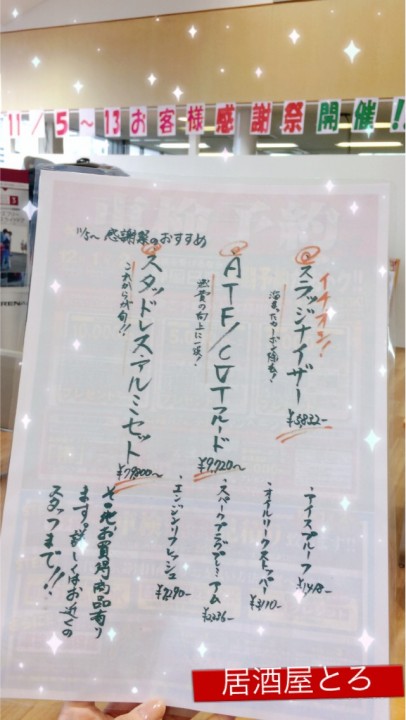 11/5~13お客様感謝祭開催!!
11/5~ 感謝祭のおすすめ
イチオシ!
スラッジナイザー
溜まったカーボン除去!
¥5,832-
ATF/CVTフルード
燃費の向上に一役!
¥9,720~
スタッドレス・アルミセット
これからが旬!!
¥79,800~
・アイスプルーフ
・オイルリークストッパー
¥3110-
・スパークプラグプレミアム
・エンジンリフレッシュ
その他お買得商品有り
ます。詳しくはお近くの
スタッフまで!!
居酒屋とろ